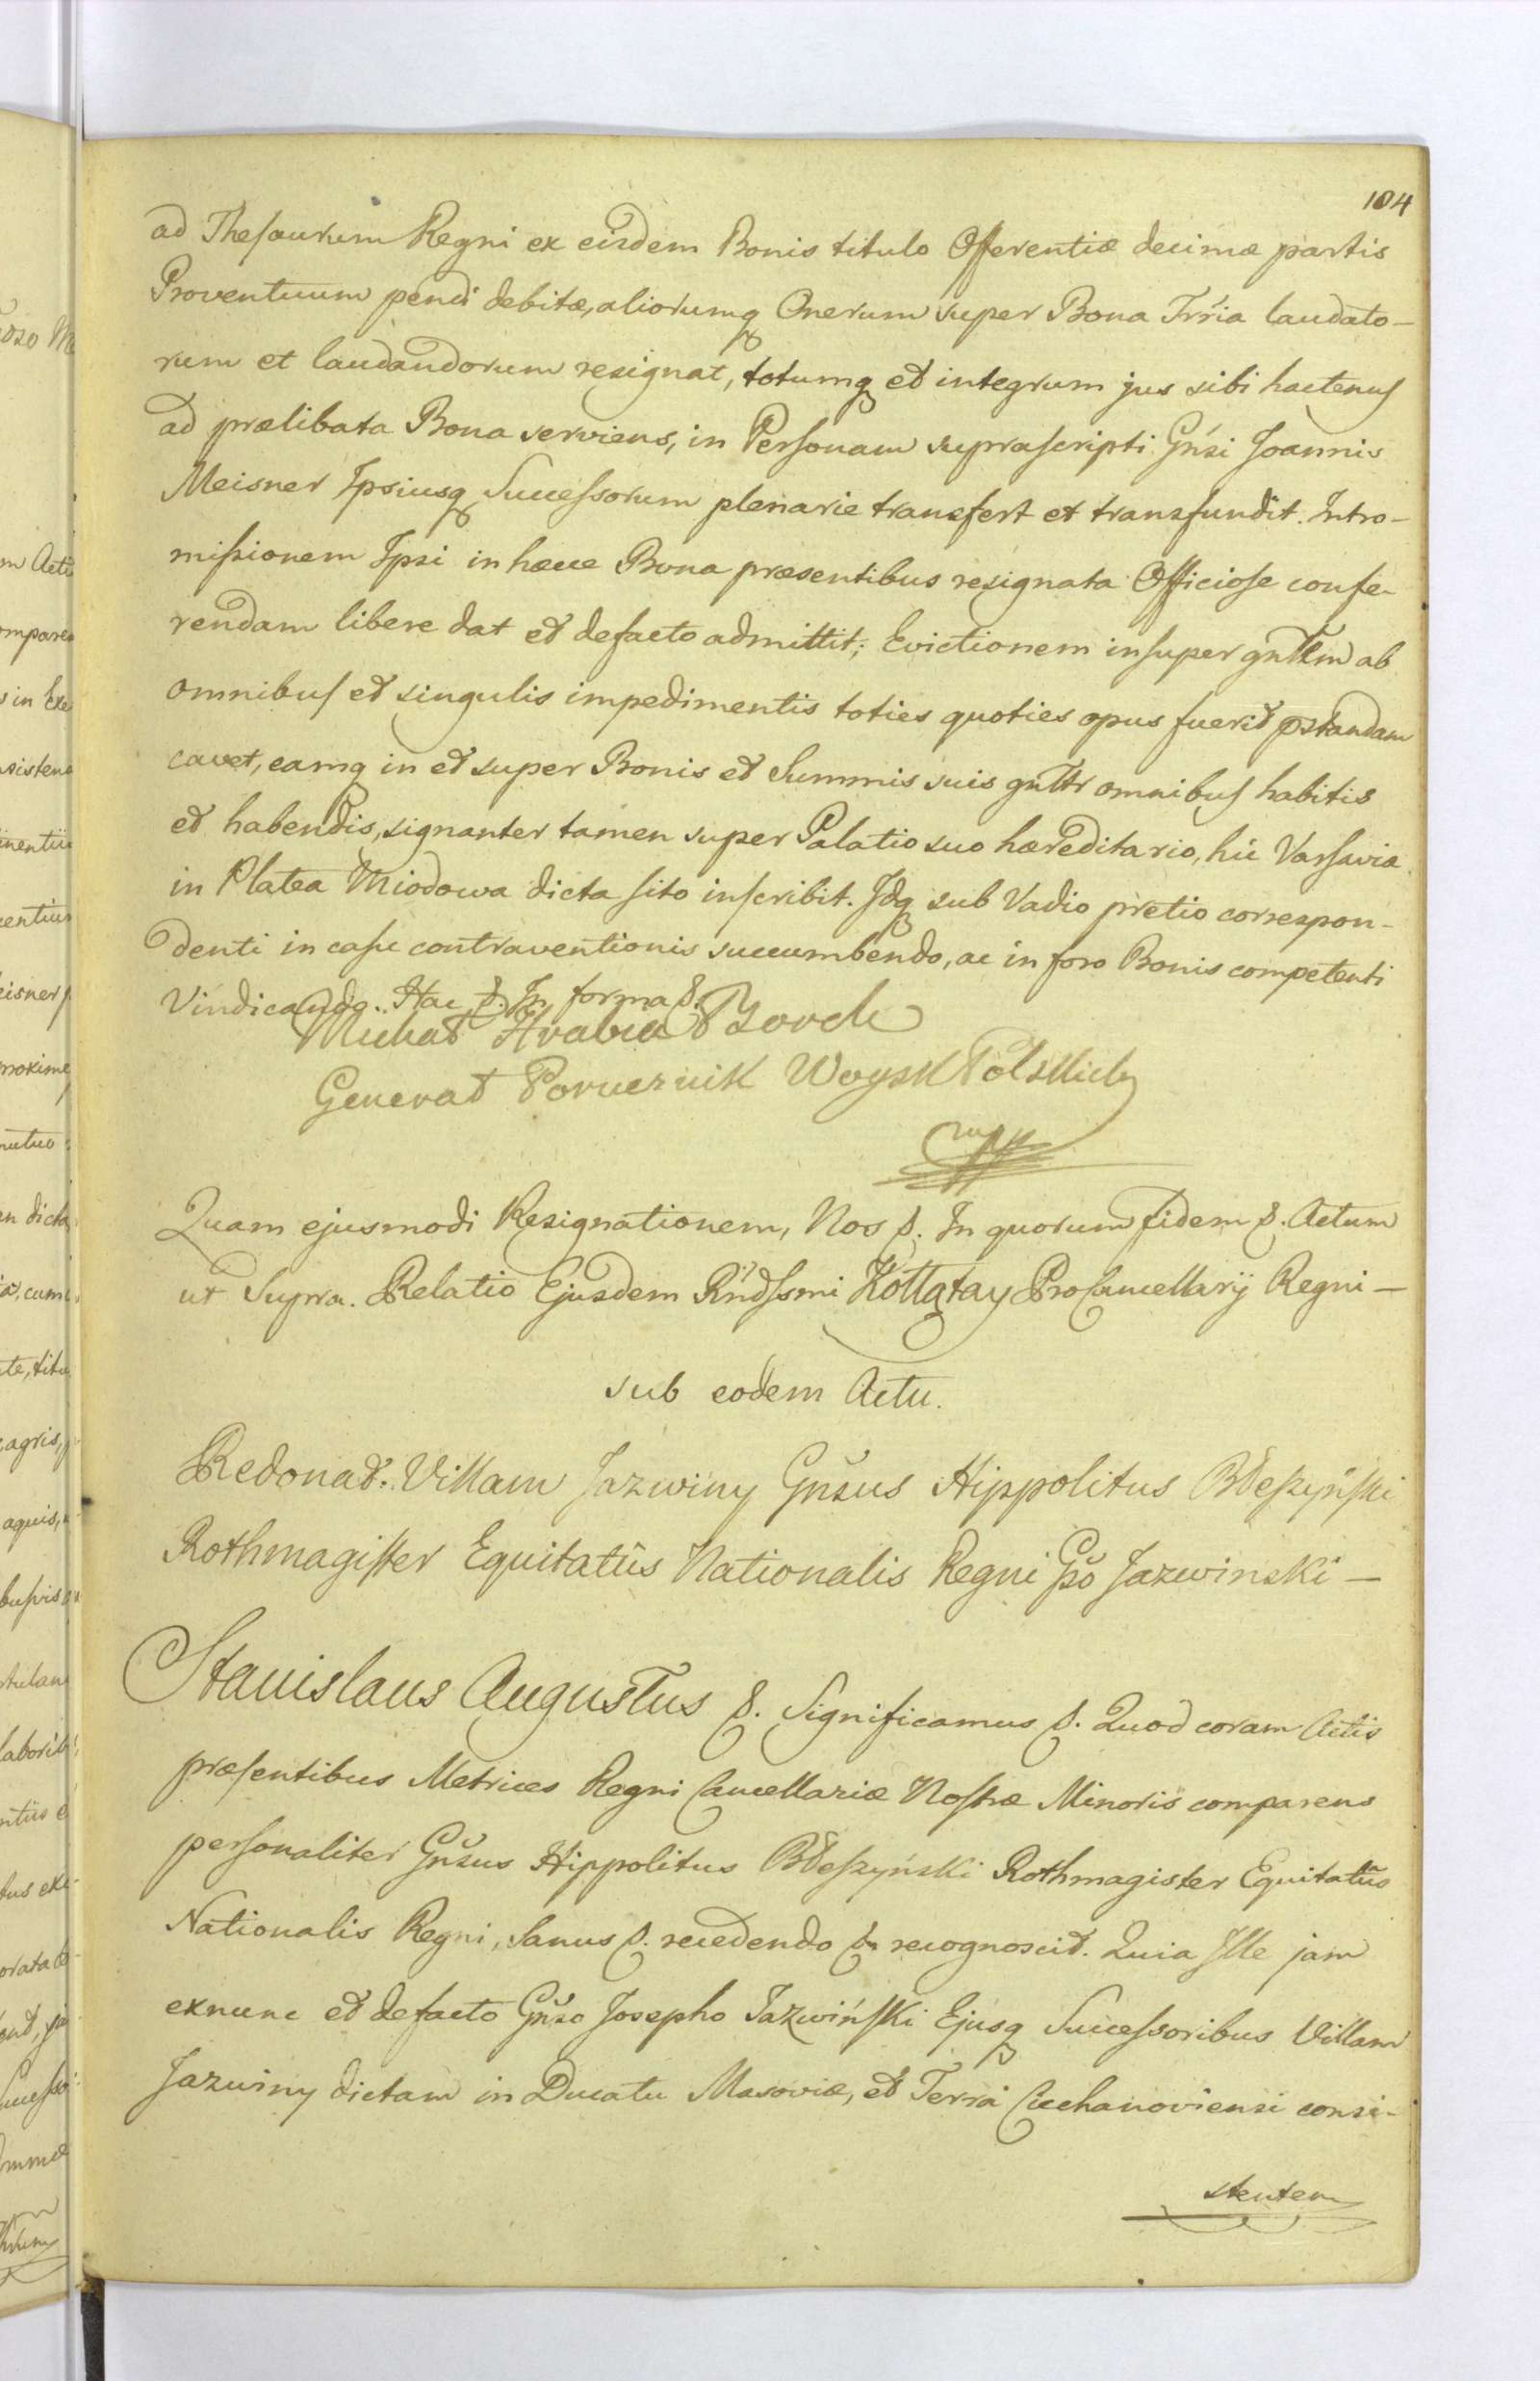 104
ad Thesaurum Regni ex eisdem Bonis titulo Offerentiæ decimæ partis
Proventuum pendi debitæ, aliorumq Onerum super Bona Trria laudato-
rum et laudandorum resignat, totumq et integrum jus sibi hactenus
ad prælibata Bona serviens, in Personam suprascripti Gnsi Joannis
Meisner Ipsiusq Successorum plenarie transfert et transfundit. Intro-
missionem Ipsi in hæcce Bona præsentibus resignata Officiose confe-
rendam libere dat et defacto admittit; Evictionem insuper gnltm ab
omnibus et singulis impedimentis toties quoties opus fuerit pstandam
cavet, eamq in et super Bonis et Summis suis gnltr omnibus habitis
et habendis, signanter tamen super Palatio suo hæreditario, hic Varsaviæ
in Platea Miodowa dicta sito inscribit. Idq sub Vadio pretio correspon-
denti in casu contraventionis succumbendo, ac in foro Bonis competenti
Vindicando. Hac &. In forma &.
Michał Hrabia Borch
Generał Porucznik Woysk Polskich
mpp
Quam ejusmodi Resignationem, Nos &. In quorum fidem &. Actum
ut Supra. Relatio Ejusdem Rndssmi Kołłątay ProCancellarij Regni —
sub eodem Actu.
Redonat. Villam Jazwiny Gnsus Hippolitus Błeszyński
Rothmagister Equitatûs Nationalis Regni Gso Jazwinski —
Stanislaus Augustus &. Significamus &. Quod coram Actis
præsentibus Metrices Regni Cancellariæ Nostræ Minoris comparens
personaliter Gnsus Hippolitus Błeszyński Rothmagister Equitatûs
Nationalis Regni, Sanus &. recedendo & recognoscit. Quia Ille jam
exnunc et defacto Gnso Josepho Jazwiński Ejusq Successoribus Villam
Jazwiny dictam in Ducatu Masoviæ, et Terrâ Ciechanoviensi consi-
stentem